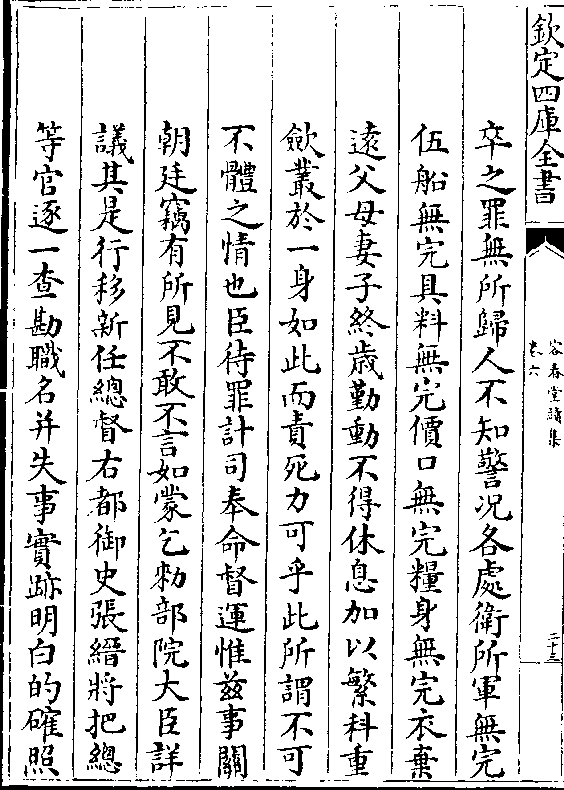 欽定四庫全書
容春堂續集
卷六
二十三
卒之罪無所歸人不知警况各處衛所軍無完
伍船無完具料無完價口無完糧身無完衣棄
逺父母妻子終歲勤動不得休息加以繁科重
歛叢於一身如此而責死力可乎此所謂不可
不體之情也臣待罪計司奉命督運惟兹事關
朝廷竊有所見不敢不言如蒙乞勑部院大臣詳
議其是行移新任總督右都御史張縉將把總
等官逐一查勘職名并失事實跡明白的確照